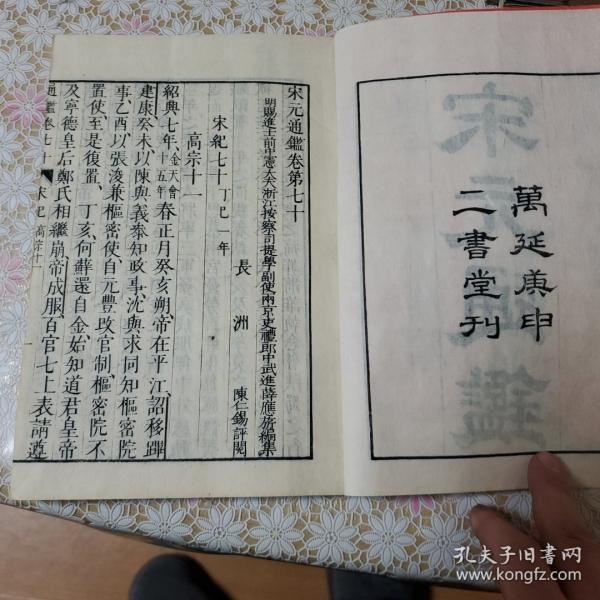 萬延庚申
二書堂刊
宋元通鑑
宋元通鑑卷第七十
明賜進士前中憲大夫浙江按察司提學副使兩京吏禮郎中武進薛應旂編集
長洲 陳仁錫評閱
宋紀七十 丁巳一年
高宗十一
紹興七年、金天會十五年春正月癸亥朔、帝在平江、詔移蹕
建康癸未以陳與義叅知政事、沈與求同知樞密院
事、乙酉以張浚兼樞密使、自元豐改官制、樞密院不
置使、至是復置、丁亥、何蘚還自金、始知道君皇帝
及寧德皇后鄭氏相繼崩、帝成服、百官七上表請遵
通鑑卷七十 宋紀 高宗十一
孔夫子旧书网
www.kongfz.com